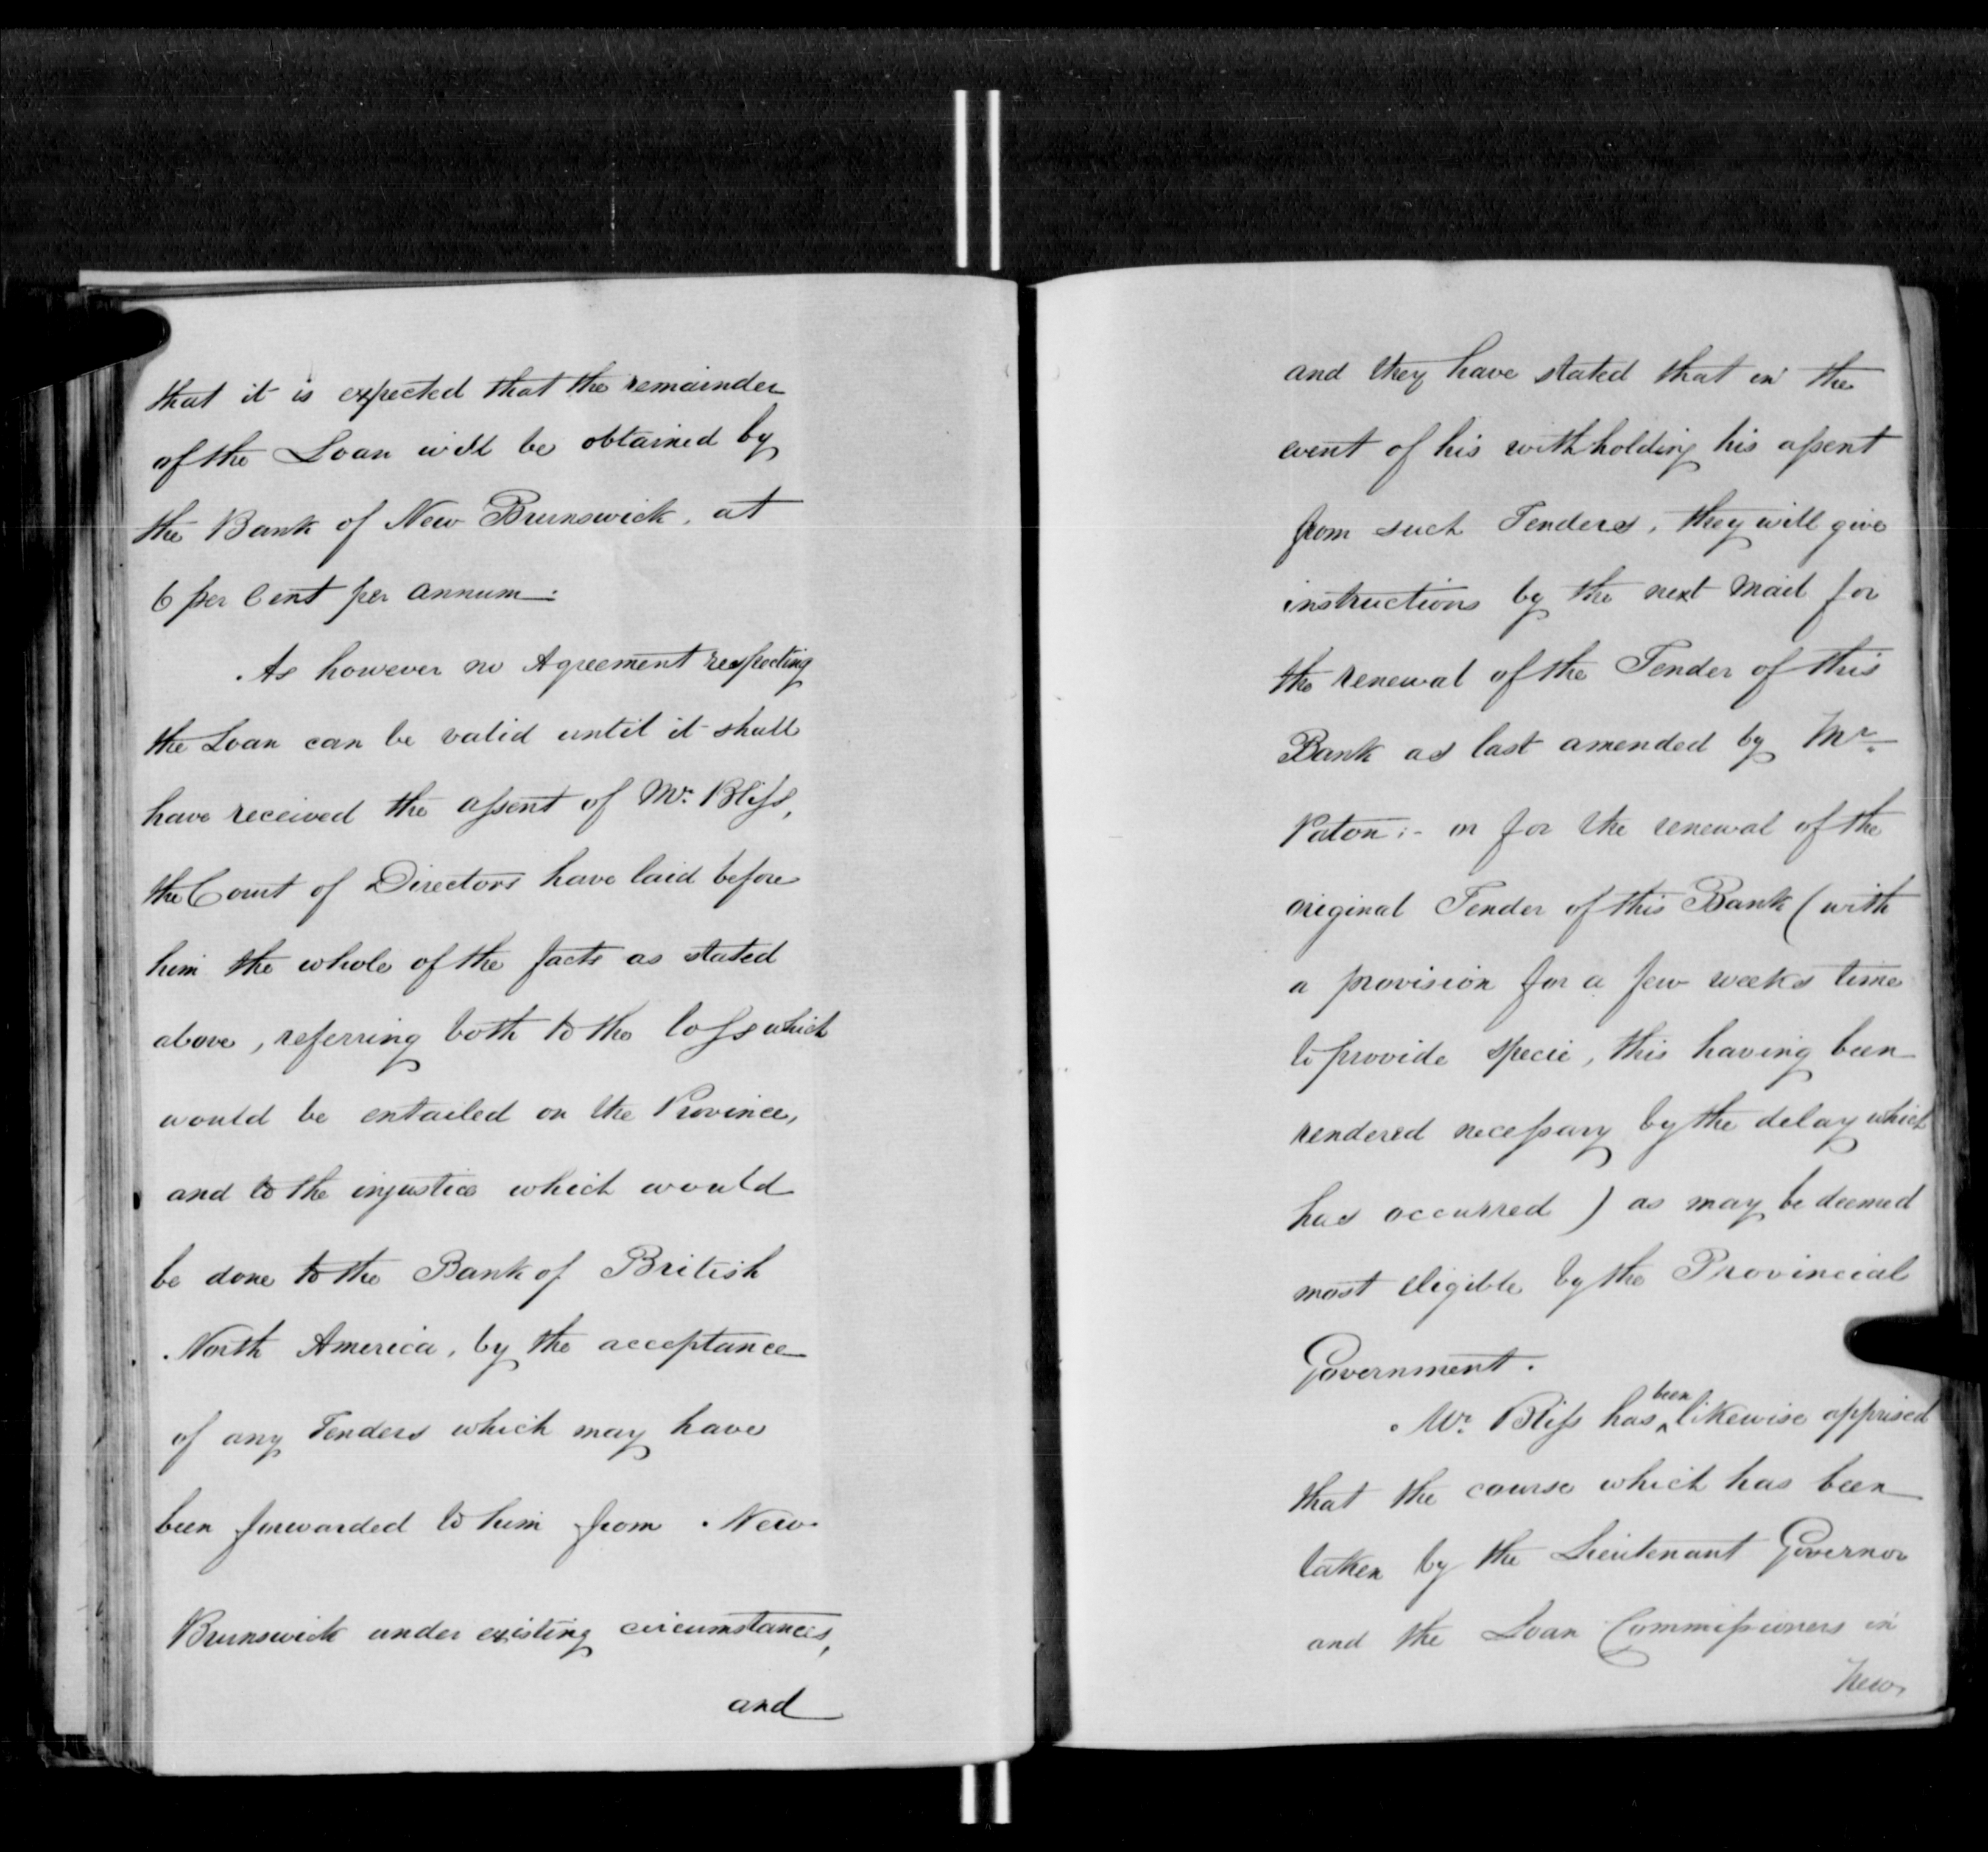 that it is expected that the remainder
of the Loan will be obtained by
the Bank of New Brunswick, at
6 per Cent per annum.
As however no Agreement respecting
the Loan can be valid until it shall
have received the assent of Mr. Bliss,
the Court of Directors have laid before
him the whole of the facts as stated
above, referring both to the loss which
would be entailed on the Province,
and to the injustice which would
be done to the Bank of British
North America, by the acceptance
of any Tenders which may have
been forwarded to him from New
Brunswick under existing circumstances,
and
and they have stated that in the
event of his withholding his assent
from such Tenders, they will give
instructions by the next Mail for
the renewal of the Tender of this
Bank as last amended by Mr.
Paton:- or for the renewal of the
original Tender of this Bank (with
a provision for a few weeks time
to provide specie, this having been
rendered necessary by the delay which
has occurred) as may be deemed
most eligible by the Provincial
Government.
Mr. Bliss has been likewise apprised
that the course which has been
taken by the Lieutenant Governor
and the Loan Commissioners in
New